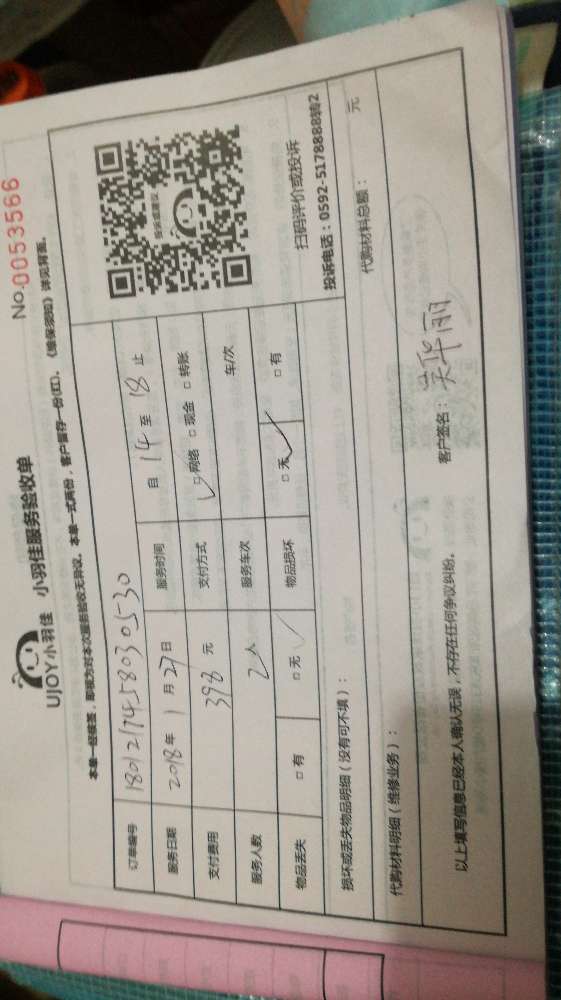 UJOY小羽佳 小羽佳服务验收单
No.0053566
本单一经续签，即视为对本次服务验收无异议。本单一式两份，客户留存一份(红)。《维保须知》详见背面。
订单编号 180121745803 0530
服务日期 2018年 1月27日 服务时间 自 14 至 18 止
支付费用 398 元 支付方式 □网络 □现金 □转账
服务人数 2人 服务车次 车/次
物品丢失 □有 □无 物品损坏 □无 □有
投诉或建议
扫码评价或投诉
投诉电话：0592-5178888转2
损坏或丢失物品明细（没有可不填）：
代购材料明细（维修业务）： 代购材料总额： 元
以上填写信息已经本人确认无误，不存在任何争议纠纷。 客户签名：吴华丽